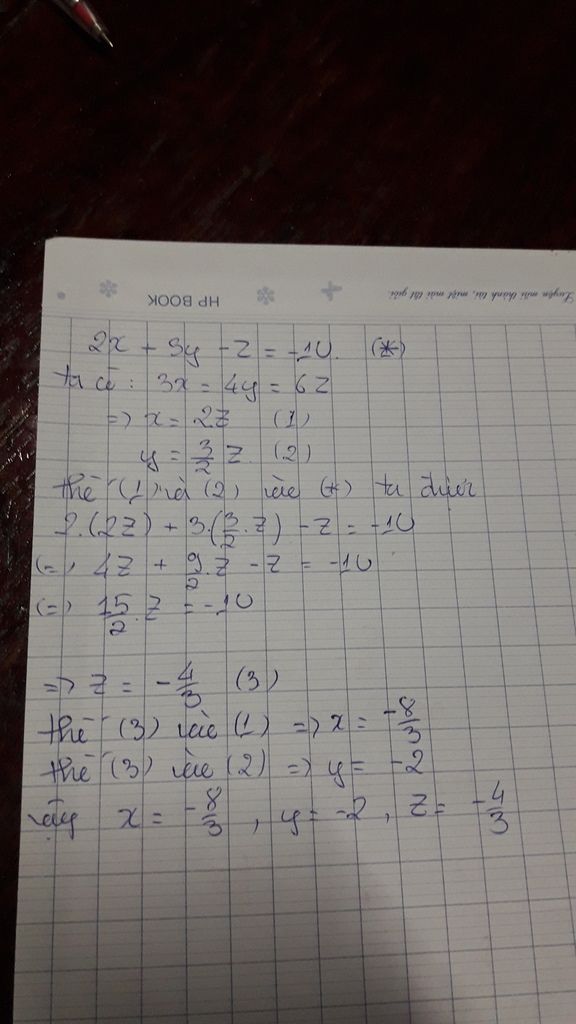 Luyện mãi thành tài, miệt mài tất giỏi.
HP BOOK
2x + 3y - z = -10. (*)
ta có : 3x = 4y = 6z
=> x = 2z (1)
y = 3/2 z. (2)
thế (1) và (2) vào (*) ta được
2.(2z) + 3.(3/2 . z) - z = -10
(=) 4z + 9/2 . z - z = -10
(=) 15/2 . z = -10
=> z = -4/3 (3)
thế (3) vào (1) => x = -8/3
thế (3) vào (2) => y = -2
vậy x = -8/3 , y = -2 , z = -4/3